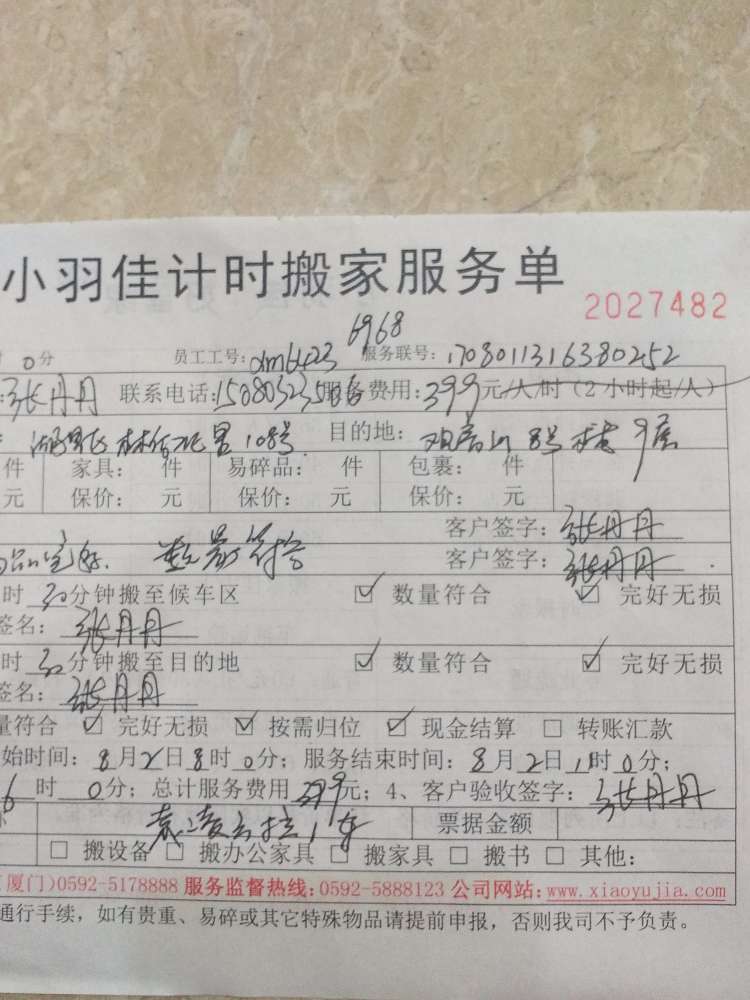 小羽佳计时搬家服务单
2027482
6968
时 0分 员工工号: 服务联号: 1708011316380252
: 张丹丹 联系电话: 服务费用: 399元/人/时（2小时起/人）
: 108号 目的地: 8号 9层
件 家具: 件 易碎品: 件 包裹: 件
元 保价: 元 保价: 元 保价: 元
客户签字: 张丹丹
数量符合 客户签字: 张丹丹
时 30分钟搬至候车区 ☑ 数量符合 ☑ 完好无损
签名: 张丹丹
时 30分钟搬至目的地 ☑ 数量符合 ☑ 完好无损
签名: 张丹丹
量符合 ☑ 完好无损 ☑ 按需归位 ☑ 现金结算 □ 转账汇款
始时间: 8月2日8时0分; 服务结束时间: 8月2日11时0分;
6时0分; 总计服务费用399元; 4、客户验收签字: 张丹丹
票据金额
□ 搬设备 □ 搬办公家具 □ 搬家具 □ 搬书 □ 其他:
(厦门)0592-5178888 服务监督热线:0592-5888123 公司网站:www.xiaoyujia.com
通行手续，如有贵重、易碎或其它特殊物品请提前申报，否则我司不予负责。